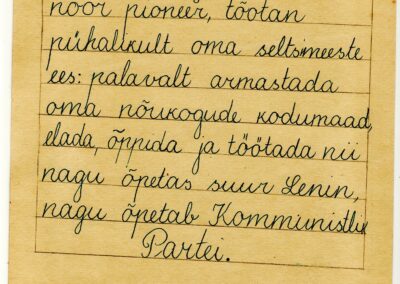 noor pioneer, tõotan
pühalikult oma seltsimeeste
ees: palavalt armastada
oma nõukogude kodumaad,
elada, õppida ja töötada nii
nagu õpetas suur Lenin,
nagu õpetab Kommunistlik
Partei.